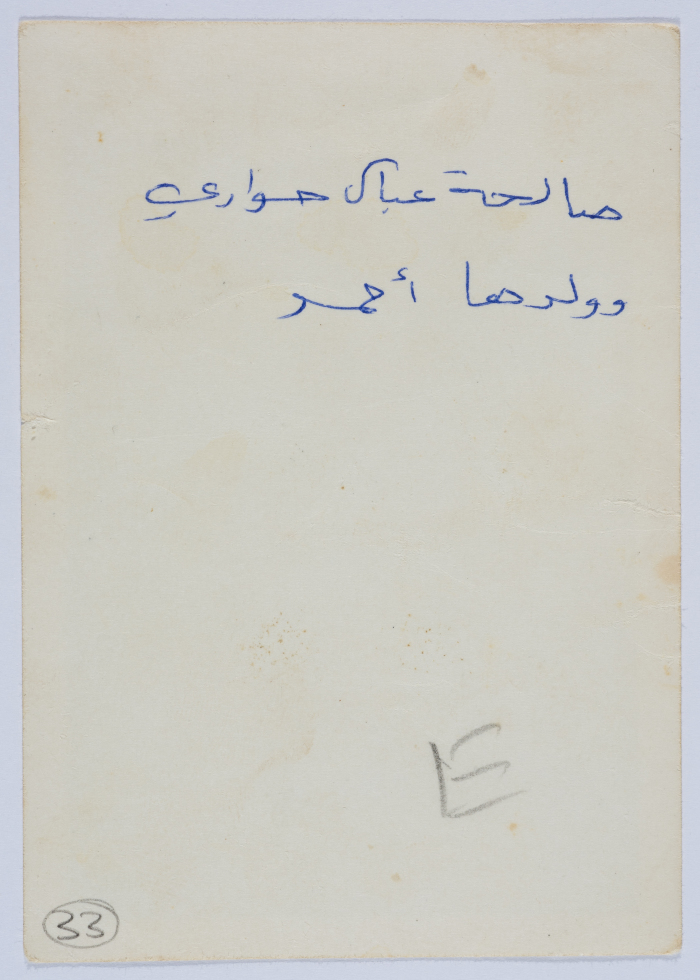 صالحة عباس حواري
وولدها أحمد
E
33